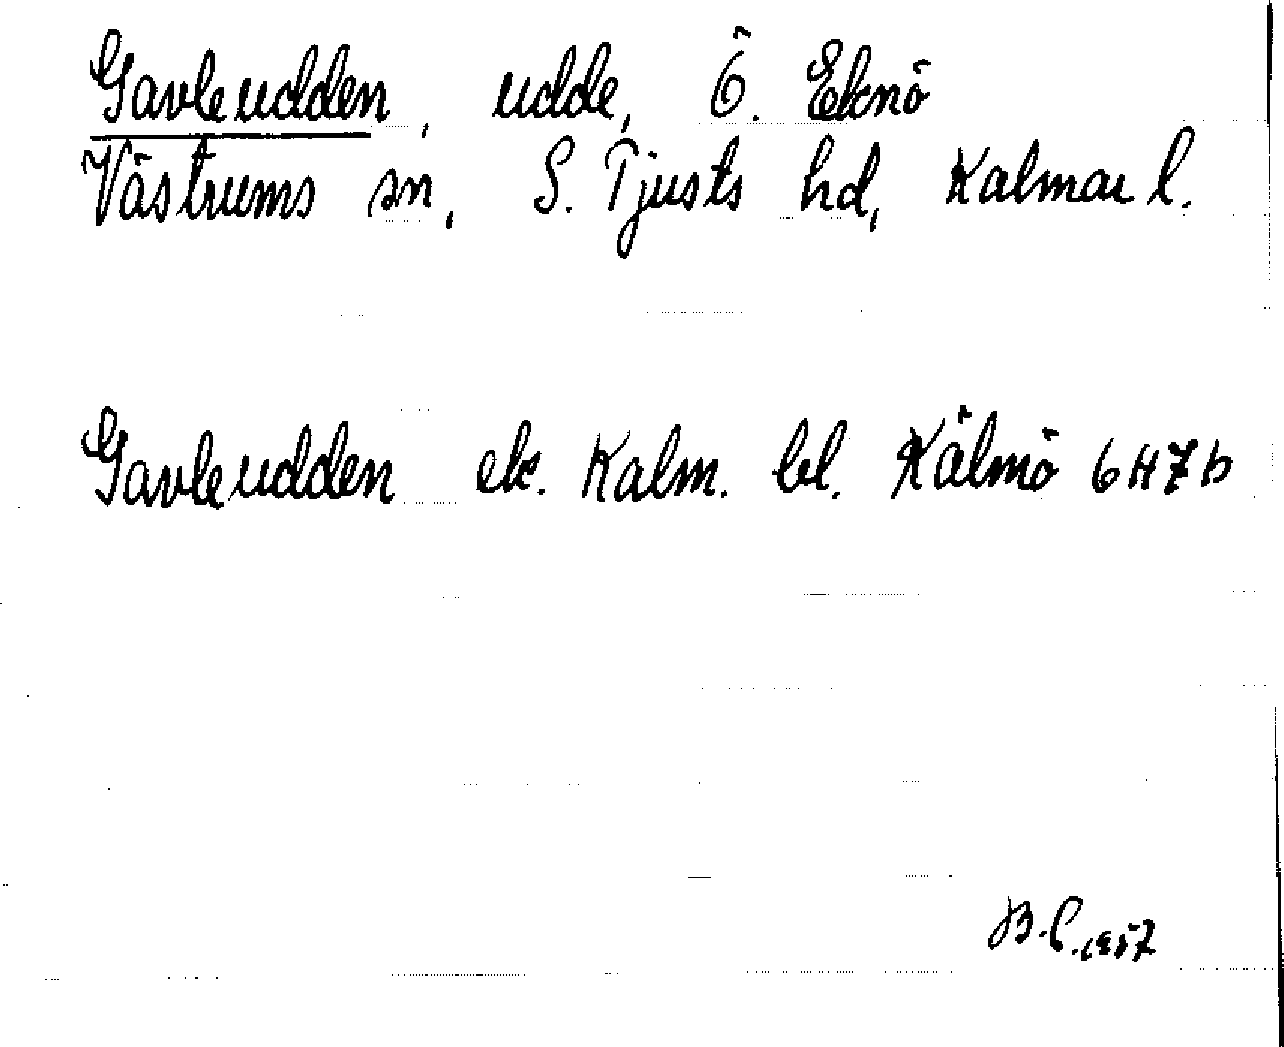 Gavleudden, udde, Ö. Eknö
Västrums sn, S. Tjusts hd, Kalmar l.
Gavleudden ek. Kalm. bl. Kälmö 6H7b
B.L. 1957